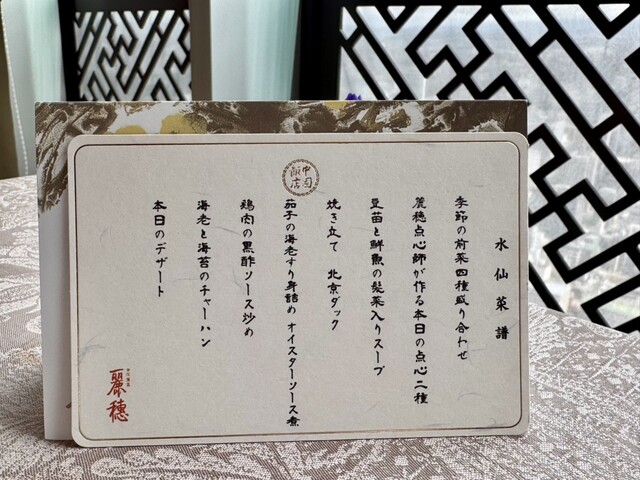 中国飯店
水仙菜譜
季節の前菜四種盛り合わせ
麗穂点心師が作る本日の点心二種
豆苗と鮮魚の髪菜入りスープ
焼き立て 北京ダック
茄子の海老すり身詰め オイスターソース煮
鶏肉の黒酢ソース炒め
海老と海苔のチャーハン
本日のデザート
麗穂